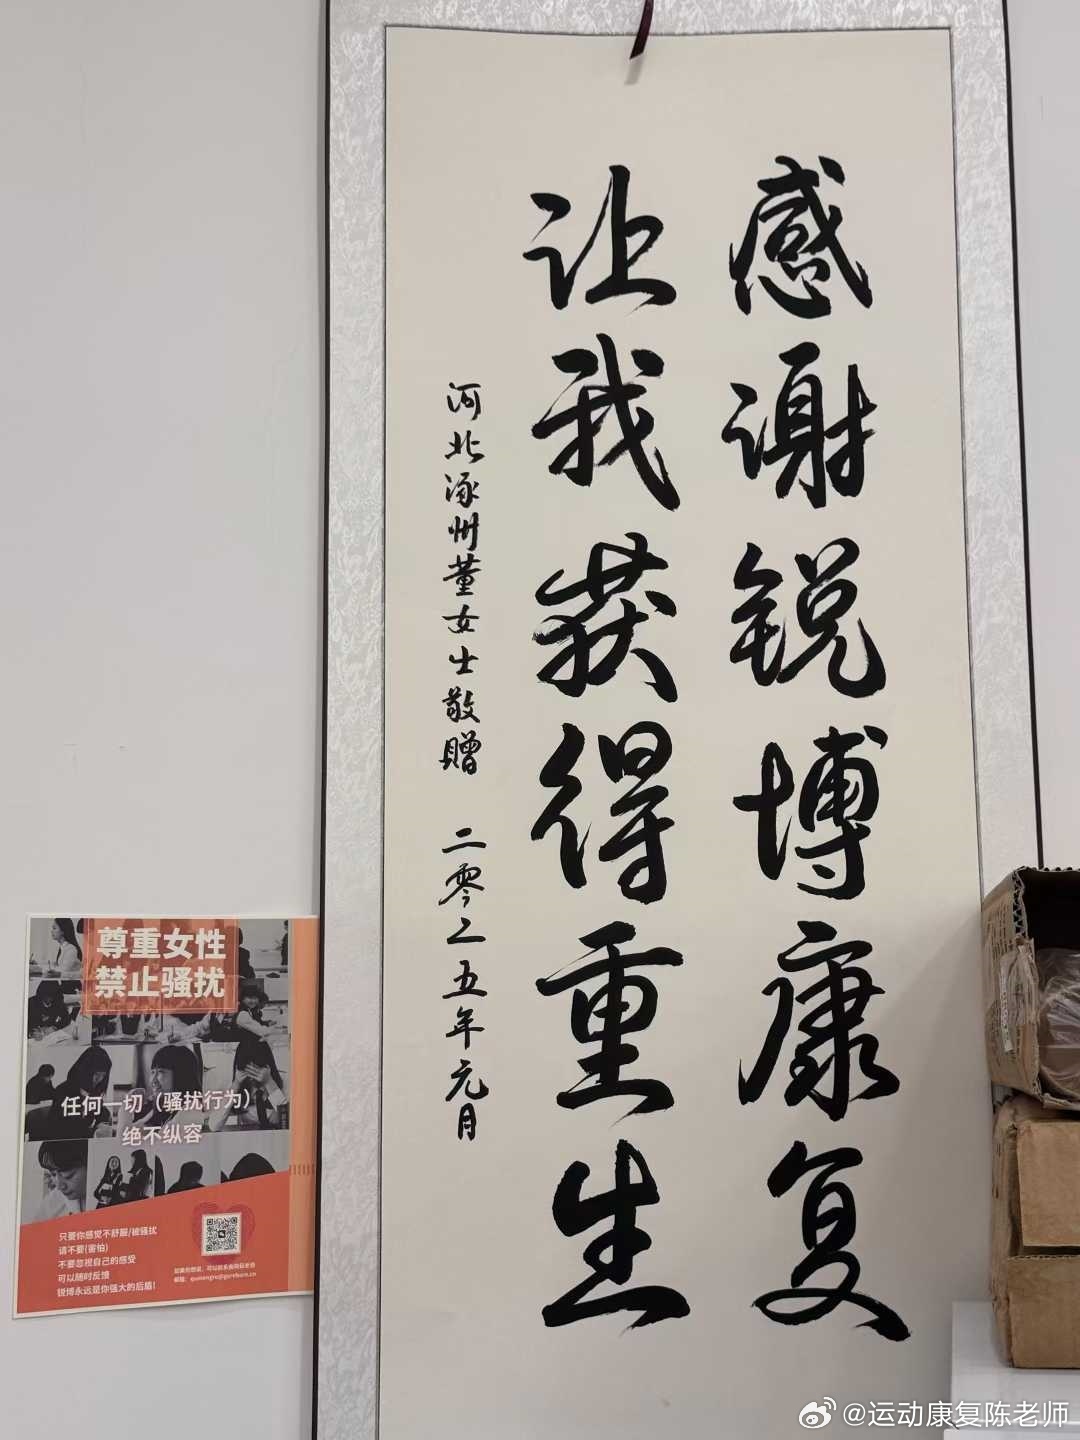 感谢锐博康复
让我获得重生
河北涿州董女士敬赠 二零二五年元月
尊重女性
禁止骚扰
任何一切（骚扰行为）
绝不纵容
只要你感觉不舒服/被骚扰
请不要(害怕)
不要忽视自己的感受
可以随时反馈
锐博永远是你强大的后盾!
@运动康复陈老师